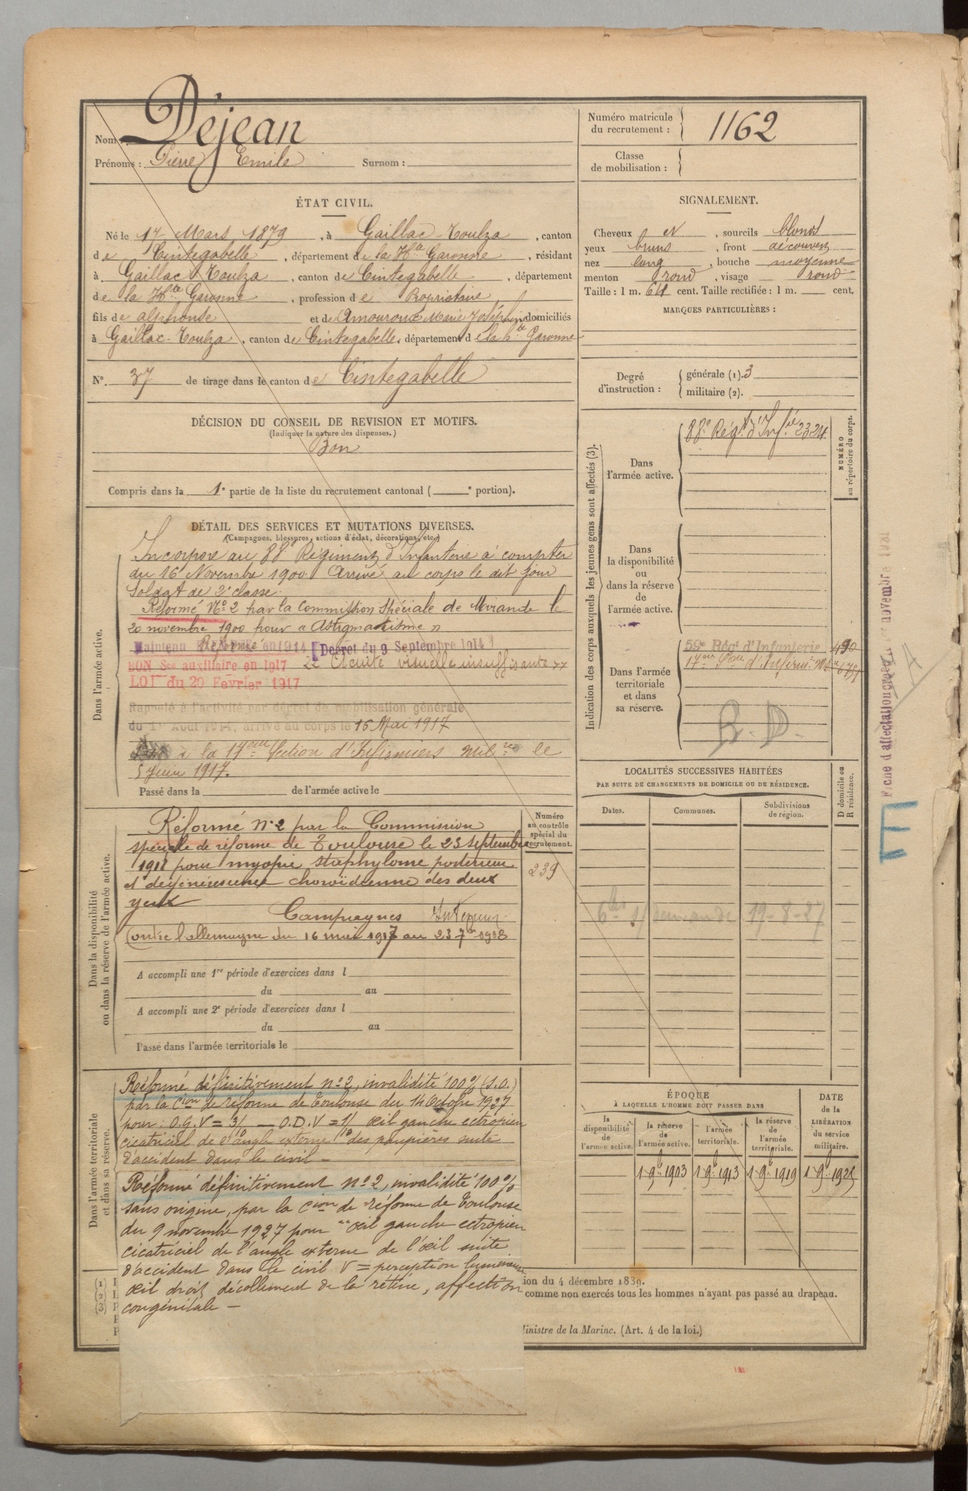 Nom : Déjean
Prénoms : Pierre Emile Surnom :
ÉTAT CIVIL.
Né le 17 Mars 1879, à Gaillac-Toulza, canton
de Cintegabelle, département de la Hte Garonne, résidant
à Gaillac-Toulza, canton de Cintegabelle, département
de la Hte Garonne, profession de Propriétaire,
fils de alphonse et de Amouroux Marie Joséphine domiciliés
à Gaillac-Toulza, canton de Cintegabelle, département de la hte Garonne
N°. 37 de tirage dans le canton de Cintegabelle
DÉCISION DU CONSEIL DE REVISION ET MOTIFS.
(Indiquer la nature des dispenses.)
Bon
Compris dans la 1e partie de la liste du recrutement cantonal ( e portion).
Numéro matricule du recrutement : 1162
Classe de mobilisation :
SIGNALEMENT.
Cheveux et, sourcils blonds
yeux bruns, front découvert
nez long, bouche moyenne
menton rond, visage rond
Taille : 1 m. 64 cent. Taille rectifiée : 1 m. cent.
MARQUES PARTICULIÈRES :
Degré d'instruction : générale (1). 3
militaire (2).
DÉTAIL DES SERVICES ET MUTATIONS DIVERSES.
(Campagnes, blessures, actions d'éclat, décorations, etc.)
Dans l'armée active.
Incorporé au 88e Régiment d'Infanterie à compter
du 16 Novembre 1900. Arrivé au corps le dit jour
Soldat de 2e classe.
Réformé N° 2 par la Commission Spéciale de Mirande le
20 novembre 1900 pour « Astigmatisme »
Maintenu Réformé en 1914 Décret du 9 Septembre 1914
BON Sce auxiliaire en 1917 Acuité visuelle insuffisante
LOI du 20 Février 1917
Rappelé à l'activité par décret de mobilisation générale
du 1er Août 1914, arrivé au corps le 16 Mai 1917
à la 17eme Section d'Infirmiers milres le
5 Juin 1917.
Passé dans la de l'armée active le
Dans la disponibilité ou dans la réserve de l'armée active.
Réformé n° 2 par la Commission
spéciale de réforme de Toulouse le 23 septembre
1918 pour myopie staphylome postérieur
et dégénérescence choroïdienne des deux
yeux
Campagnes
Contre l'allemagne du 16 mai 1917 au 23 7bre 1918
A accompli une 1re période d'exercices dans l
du au
A accompli une 2e période d'exercices dans l
du au
Passé dans l'armée territoriale le
Numéro au contrôle spécial du recrutement.
239
Dans l'armée territoriale et dans sa réserve.
Réformé définitivement n° 2, invalidité 100% (S.O.)
par la Cion de réforme de Toulouse du 14 Octobre 1927
pour : O.G. V = — O.D. V = œil gauche ectropion
cicatriciel de l'angle externe des paupières suite
d'accident dans le civil —
Réformé définitivement n° 2, invalidité 100%
sans origine, par la Cion de réforme de Toulouse
du 9 novembre 1927 pour " œil gauche ectropion
cicatriciel de l'angle externe de l'œil suite
d'accident dans le civil V = perception lumineuse
œil droit décollement de la rétine, affection
congénitale —
Indication des corps auxquels les jeunes gens sont affectés (3).
NUMÉRO au répertoire du corps.
Dans l'armée active. 88e Régt d'Infie 2324
Dans la disponibilité ou dans la réserve de l'armée active.
Dans l'armée territoriale et dans sa réserve.
59e Régt d'Infanterie
17me Son d'Infirm. Mres
R.D.
LOCALITÉS SUCCESSIVES HABITÉES
PAR SUITE DE CHANGEMENTS DE DOMICILE OU DE RÉSIDENCE.
Dates. Communes. Subdivisions de région. D domicile ou R résidence.
19-8-27
ÉPOQUE
À LAQUELLE L'HOMME DOIT PASSER DANS
DATE de la LIBÉRATION du service militaire.
la disponibilité de l'armée active. la réserve de l'armée active. l'armée territoriale. la réserve de l'armée territoriale.
1 9b 1903 1 9b 1913 1 9b 1919 1 9b 1925
ion du 4 décembre 1889.
comme non exercés tous les hommes n'ayant pas passé au drapeau.
Ministre de la Marine. (Art. 4 de la loi.)